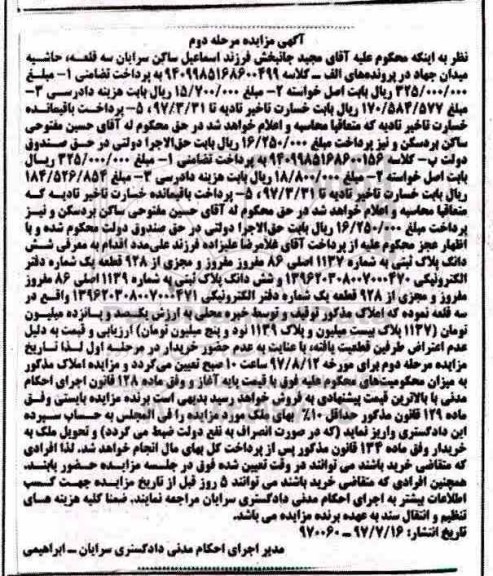 آگهی مزایده مرحله دوم
نظر به اینکه محکوم علیه آقای مجید جانبخش فرزند اسماعیل ساکن سرایان سه قلعه، حاشیه
میدان جهاد در پرونده‌های الف ــ کلاسه ۹۴۰۹۹۸۵۱۶۸۶۰۰۴۹۹ به پرداخت تضامنی ۱- مبلغ
۳۲۵/۰۰۰/۰۰۰ ریال بابت اصل خواسته ۲- مبلغ ۱۵/۷۰۰/۰۰۰ ریال بابت هزینه دادرسی ۳-
مبلغ ۱۷۰/۵۸۴/۵۷۷ ریال بابت خسارت تاخیر تادیه تا ۹۷/۳/۳۱، ۵- پرداخت باقیمانده
خسارت تاخیر تادیه که متعاقبا محاسبه و اعلام خواهد شد در حق محکوم له آقای حسین مفتوحی
ساکن بردسکن و نیز پرداخت مبلغ ۱۶/۲۵۰/۰۰۰ ریال بابت حق‌الاجرا دولتی در حق صندوق
دولت ب- کلاسه ۹۴۰۹۹۸۵۱۶۸۶۰۰۱۵۶ به پرداخت تضامنی ۱- مبلغ ۳۲۵/۰۰۰/۰۰۰ ریال
بابت اصل خواسته ۲- مبلغ ۱۸/۸۰۰/۰۰۰ ریال بابت هزینه دادرسی ۳- مبلغ ۱۸۴/۵۲۶/۸۵۴
ریال بابت خسارت تاخیر تادیه تا ۹۷/۳/۳۱، ۵- پرداخت باقیمانده خسارت تاخیر تادیه که
متعاقبا محاسبه و اعلام خواهد شد در حق محکوم له آقای حسین مفتوحی ساکن بردسکن و نیز
پرداخت مبلغ ۱۶/۲۵۰/۰۰۰ ریال بابت حق‌الاجرا دولتی در حق صندوق دولت محکوم شده و با
اظهار عجز محکوم علیه از پرداخت آقای غلامرضا علیزاده فرزند علی‌مدد اقدام به معرفی شش
دانگ پلاک ثبتی به شماره ۱۱۳۷ اصلی ۸۶ مفروز مفروز و مجزی از ۹۲۸ قطعه یک شماره دفتر
الکترونیکی ۱۳۹۶۲۰۳۰۸۰۰۷۰۰۰۴۷۰ و شش دانگ پلاک ثبتی به شماره ۱۱۳۹ اصلی ۸۶ مفروز
مفروز و مجزی از ۹۲۸ قطعه یک شماره دفتر الکترونیکی ۱۳۹۶۲۰۳۰۸۰۰۷۰۰۰۴۷۱ واقع در
سه قلعه نموده که املاک مذکور توقیف و توسط خبره محلی به ارزش یکصد و پانزده میلیون
تومان (۱۱۳۷ پلاک بیست میلیون و پلاک ۱۱۳۹ نود و پنج میلیون تومان) ارزیابی و قیمت به دلیل
عدم اعتراض طرفین قطعیت یافته، با عنایت به عدم حضور خریدار در مرحله اول لذا تاریخ
مزایده مرحله دوم برای مورخه ۹۷/۸/۱۲ ساعت ۱۰ صبح تعیین می‌گردد و مزایده املاک مذکور
به میزان محکومیت‌های محکوم علیه فوق با قیمت پایه آغاز و وفق ماده ۱۲۸ قانون اجرای احکام
مدنی با بالاترین قیمت پیشنهادی به فروش خواهد رسید بدیهی است برنده مزایده بایستی وفق
ماده ۱۲۹ قانون مذکور حداقل ۱۰٪ بهای ملک مورد مزایده را فی المجلس به حساب سپرده
این دادگستری واریز نماید (که در صورت انصراف به نفع دولت ضبط می گردد) و تحویل ملک به
خریدار وفق ماده ۱۳۳ قانون مذکور پس از پرداخت کل بهای مال انجام خواهد شد. لذا افرادی
که متقاضی خرید باشند می توانند در وقت تعیین شده فوق در جلسه مزایده حضور یابند.
همچنین افرادی که متقاضی خرید باشند می توانند ۵ روز قبل از تاریخ مزایده جهت کسب
اطلاعات بیشتر به اجرای احکام مدنی دادگستری سرایان مراجعه نمایند. ضمنا کلیه هزینه های
تنظیم و انتقال سند به عهده برنده مزایده می باشد.
تاریخ انتشار: ۹۷/۷/۱۶ – ۹۷۰۰۶۰
مدیر اجرای احکام مدنی دادگستری سرایان ــ ابراهیمی